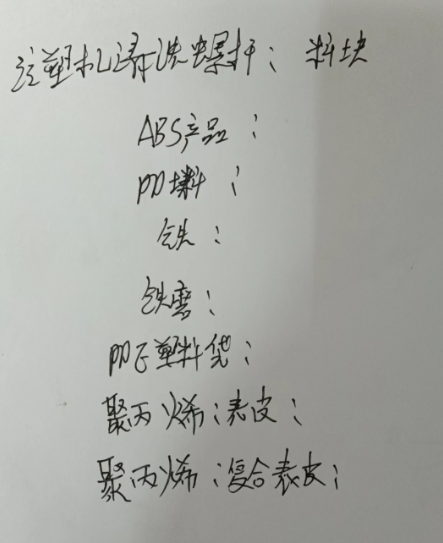 注塑机清洗螺杆：料块
ABS产品：
PP塑料：
铁：
铁磨：
PPE塑料袋：
聚丙烯：表皮：
聚丙烯：复合表皮：